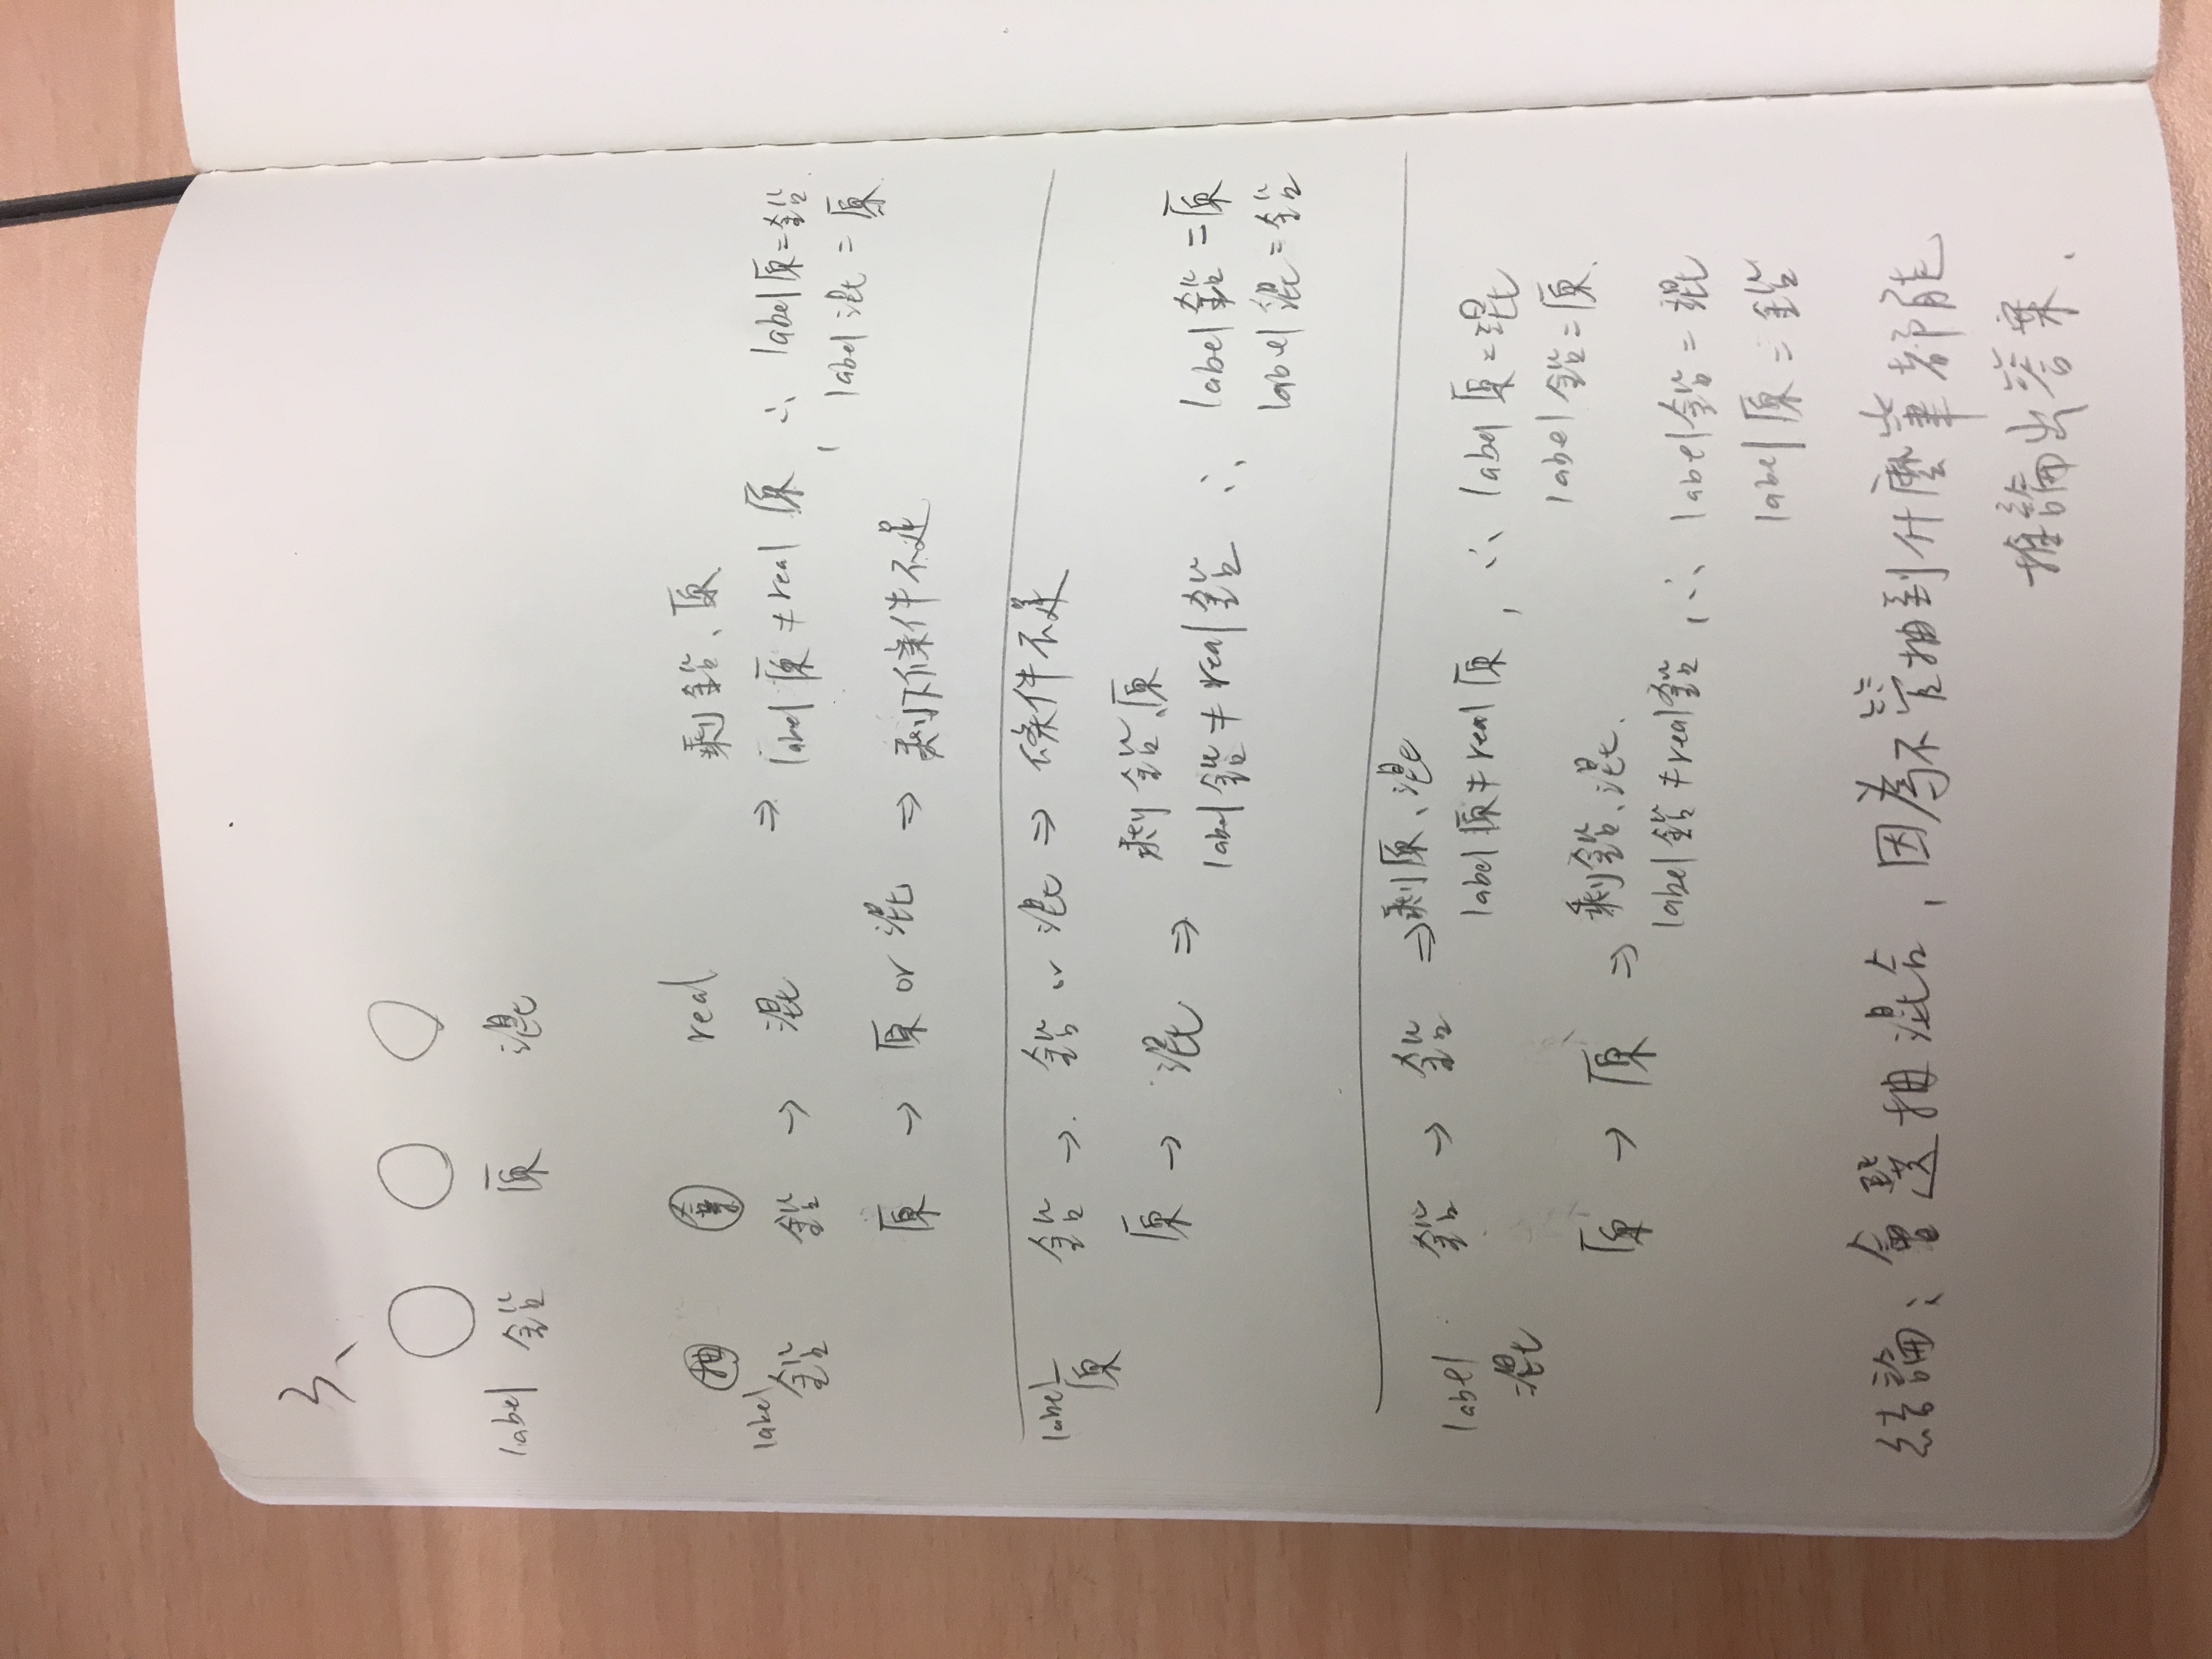 3、
label 鉛 原 混
抽 筆 real 剩鉛、原
label 鉛 鉛 → 混 ⇒ label 原 ≠ real 原, ∴ label 原=鉛
label 混 = 原
原 → 原 or 混 ⇒ 剩下條件不足
label 原 鉛 → 鉛 or 混 ⇒ 條件不足
剩鉛、原
原 → 混 ⇒ label 鉛 ≠ real 鉛 ∴ label 鉛 = 原
label 混 = 鉛
label 混 鉛 → 鉛 ⇒ 剩原、混
label 原 ≠ real 原, ∴ label 原 = 混
label 鉛 = 原
原 → 原 ⇒ 剩鉛、混
label 鉛 ≠ real 鉛, ∴ label 鉛 = 混
label 原 = 鉛
結論: 會選抽混合, 因為不管抽到什麼筆都能
推論出答案.